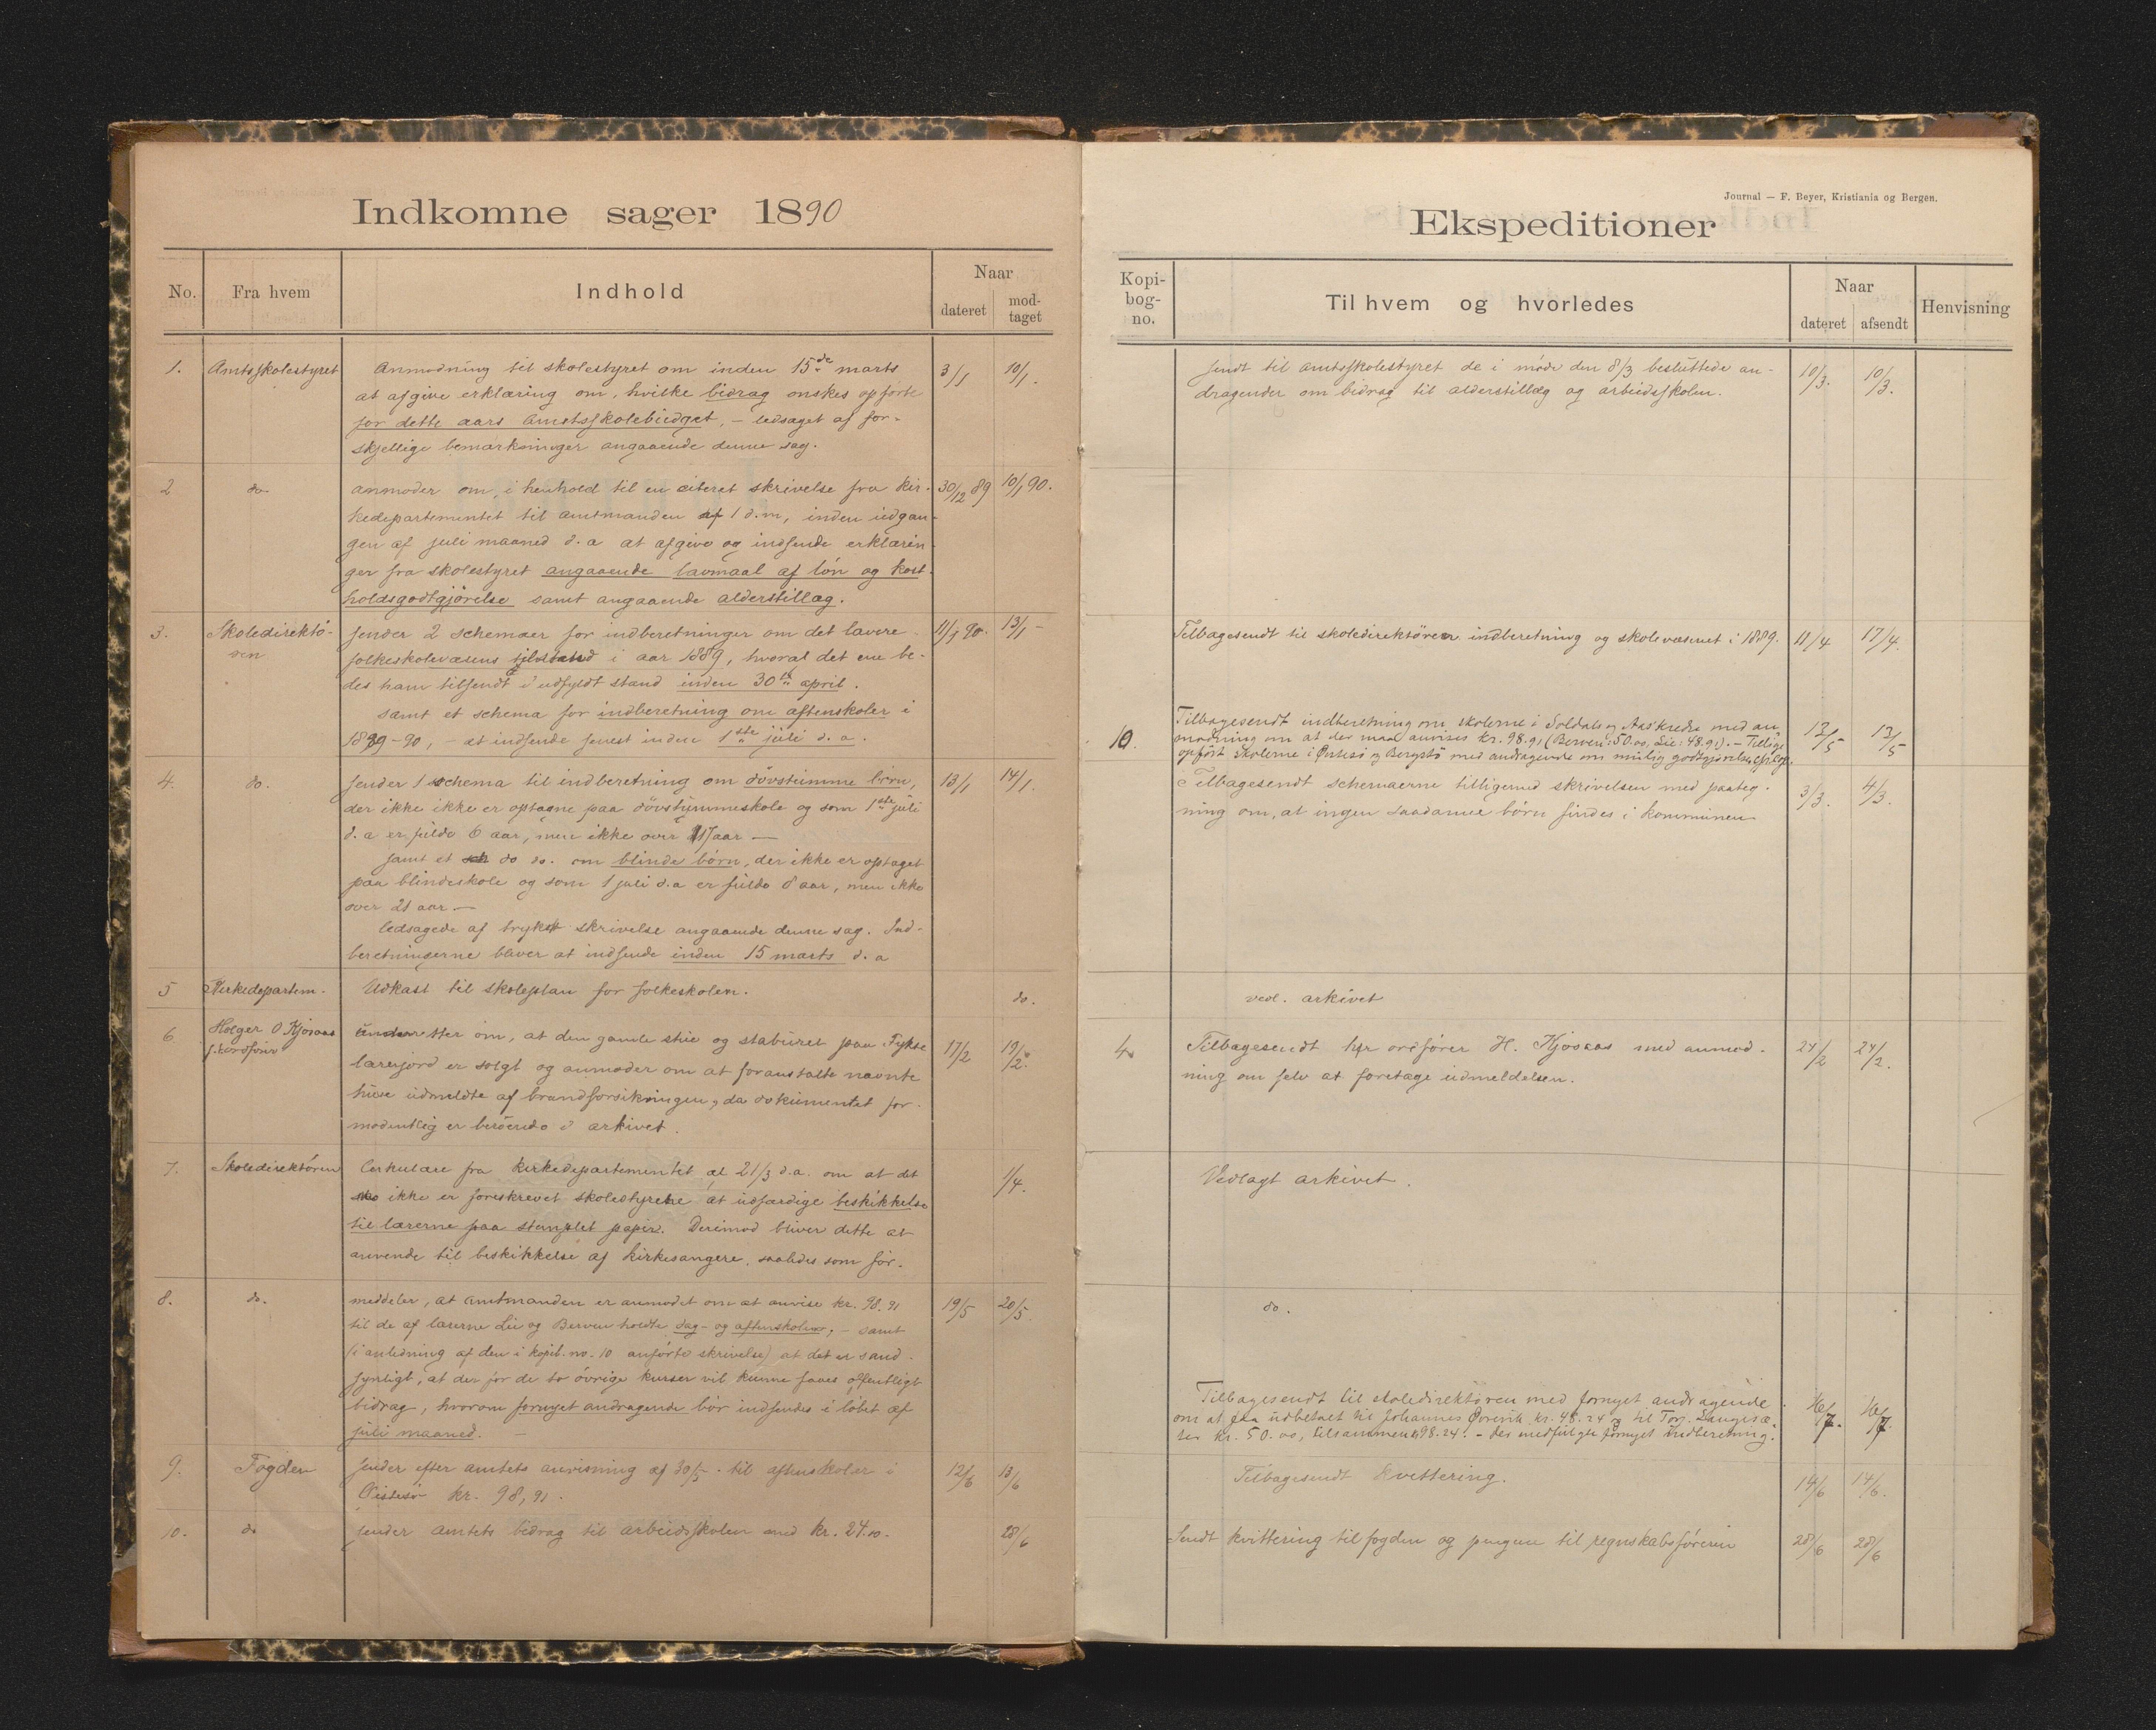 Indkomne sager 1890
No.
Fra hvem
Indhold
Naar
dateret
mod-
taget
1.
Amtsskolestyret
Anmodning til skolestyret om inden 15de marts
at afgive erklæring om, hvilke bidrag ønskes opførte
for dette aars Amtsskolebudget, – ledsaget af for-
skjellige bemærkninger angaaende denne sag.
3/1
10/1.
2
do.
anmoder om, i henhold til en citeret skrivelse fra kir-
kedepartementet til amtmanden af 1 d.m, inden udgan-
gen af juli maaned d.a at afgive og indsende erklærin-
ger fra skolestyret angaaende lavmaal af løn og kost-
holdsgodtgjørelse samt angaaende alderstillæg.
30/12 89
10/1 90.
3.
Skoledirektø-
ren
sender 2 schemaer for indberetninger om det lavere
folkeskolevæsens tilstand i aar 1889, hvoraf det ene be-
des ham tilsendt i udfyldt stand inden 30te april.
samt et schema for indberetning om aftenskoler i
1889-90, – at indsende senest inden 1ste juli d.a.
11/1 90.
13/1
4.
do.
sender 1 schema til indberetning om døvstumme børn,
der ikke ikke er optagne paa døvstummeskole og som 1ste juli
d.a er fulde 6 aar, men ikke over 17 aar –
samt et do do. om blinde børn, der ikke er optaget
paa blindeskole og som 1 juli d.a er fulde 8 aar, men ikke
over 21 aar –
ledsagede af trykt skrivelse angaaende denne sag. Ind-
beretningerne bliver at indsende inden 15 marts d.a
13/1
14/1.
5
Kirkedepartem.
Udkast til skoleplan for folkeskolen.
do.
6.
Holger O Kjosaas
underretter om, at den gamle stue og staburet paa Fykse
lærerjord er solgt og anmoder om at foranstalte nævnte
huse udmeldte af brandforsikringen, da dokumentet for-
modentlig er beroende i arkivet.
17/2
19/2.
7.
Skoledirektøren
Cirkulære fra kirkedepartementet af 21/3 d.a. om at det
ikke er foreskrevet skolestyrene at udfærdige beskikkelse
til lærerne paa stemplet papir. Derimod bliver dette at
anvende til beskikkelse af kirkesangere, saaledes som før.
1/4.
8.
do.
meddeler, at amtmanden er anmodet om at anvise kr. 98.91
til de af lærerne Lie og Berven holdte dag- og aftenskoler, – samt
(i anledning af den i kopib. no. 10 anførte skrivelse) at det er sand-
synligt, at der for de to øvrige kurser vil kunne faaes offentligt
bidrag, hvorom fornyet andragende bør indsendes i løbet af
juli maaned. –
19/5
20/5.
9.
Fogden
sender efter amtets anvisning af 30/5 til aftenskoler i
Østesø kr. 98,91.
12/6
13/6
10.
do
sender amtets bidrag til arbeidsskolen med kr. 24.10.
28/6
Journal — F. Beyer, Kristiania og Bergen.
Ekspeditioner
Kopi-
bog-
no.
Til hvem og hvorledes
Naar
dateret
afsendt
Henvisning
sendt til amtsskolestyret de i møde den 8/3 besluttede an-
dragender om bidrag til alderstillæg og arbeidsskolen.
10/3.
10/3.
Tilbagesendt til skoledirektøren indberetning og skolevæsenet i 1889.
11/4
17/4.
10.
Tilbagesendt indberetning om skolerne i Soldal og Aaskredn med an-
modning om at der maa anvises kr. 98.91 (Berven: 50.00, Lie: 48.91). – Tillige
opført skolerne i Østesø og Bergstø med andragende om mulig godtgjørelse
12/5
13/5
Tilbagesendt schemaerne tilligemed skrivelsen med paateg-
ning om, at ingen saadanne børn findes i kommunen
3/3.
4/3.
ved. arkivet
4.
Tilbagesendt hr ordfører H. Kjosaas med anmod-
ning om selv at foretage udmeldelsen.
24/2
24/2.
Vedlagt arkivet.
do.
Tilbagesendt til skoledirektøren med fornyet andragende
om at faa udbetalt til Johannes kr. 48.24 og til Torj. Langesæ-
ter kr. 50.00, tilsammen 98.24. – Der medfulgte fornyet indberetning.
Tilbagesendt kvittering.
14/6
14/6.
Sendt kvittering til fogden og pengene til regnskabsføreren
28/6
28/6